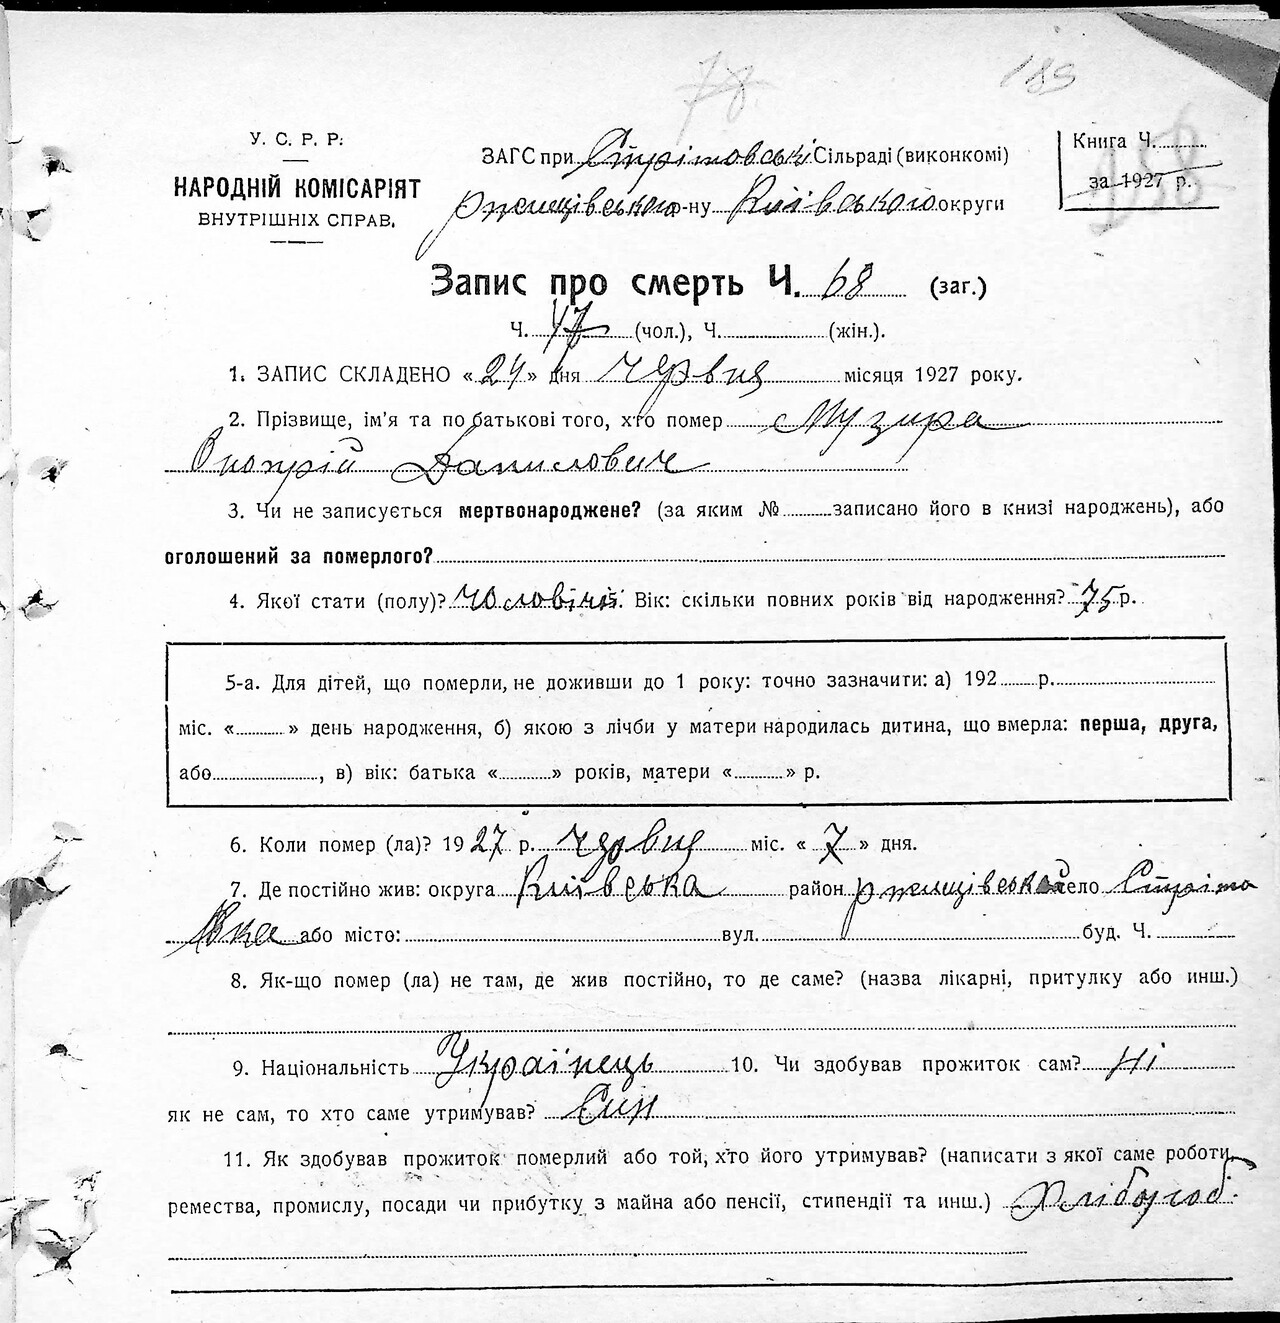 78
189
У. С. Р. Р.
НАРОДНІЙ КОМІСАРІЯТ
ВНУТРІШНІХ СПРАВ.
ЗАГС при Стрітовські Сільраді (виконкомі)
ржищівського р-ну Київського округи
Книга Ч.
за 1927 р.
258
Запис про смерть Ч. 68 (заг.)
Ч. 47 (чол.), Ч. (жін.).
1. ЗАПИС СКЛАДЕНО «24» дня червня місяця 1927 року.
2. Прізвище, ім'я та по батькові того, хто помер Музира
Онопрій Данилович
3. Чи не записується мертвонароджене? (за яким № записано його в книзі народжень), або
оголошений за померлого?
4. Якої стати (полу)? чоловічій. Вік: скільки повних років від народження? 75 р.
5-а. Для дітей, що померли, не доживши до 1 року: точно зазначити: а) 192 р.
міс. « » день народження, б) якою з лічби у матери народилась дитина, що вмерла: перша, друга,
або , в) вік: батька « » років, матери « » р.
6. Коли помер (ла)? 1927 р. червня міс. «7» дня.
7. Де постійно жив: округа Київська район ржищівський село Стріто
вка або місто: вул. буд. Ч.
8. Як-що помер (ла) не там, де жив постійно, то де саме? (назва лікарні, притулку або инш.)
9. Національність Українець 10. Чи здобував прожиток сам? Ні
як не сам, то хто саме утримував? Син
11. Як здобував прожиток померлий або той, хто його утримував? (написати з якої саме роботи
ремества, промислу, посади чи прибутку з майна або пенсії, стипендії та инш.) Хлібороб.